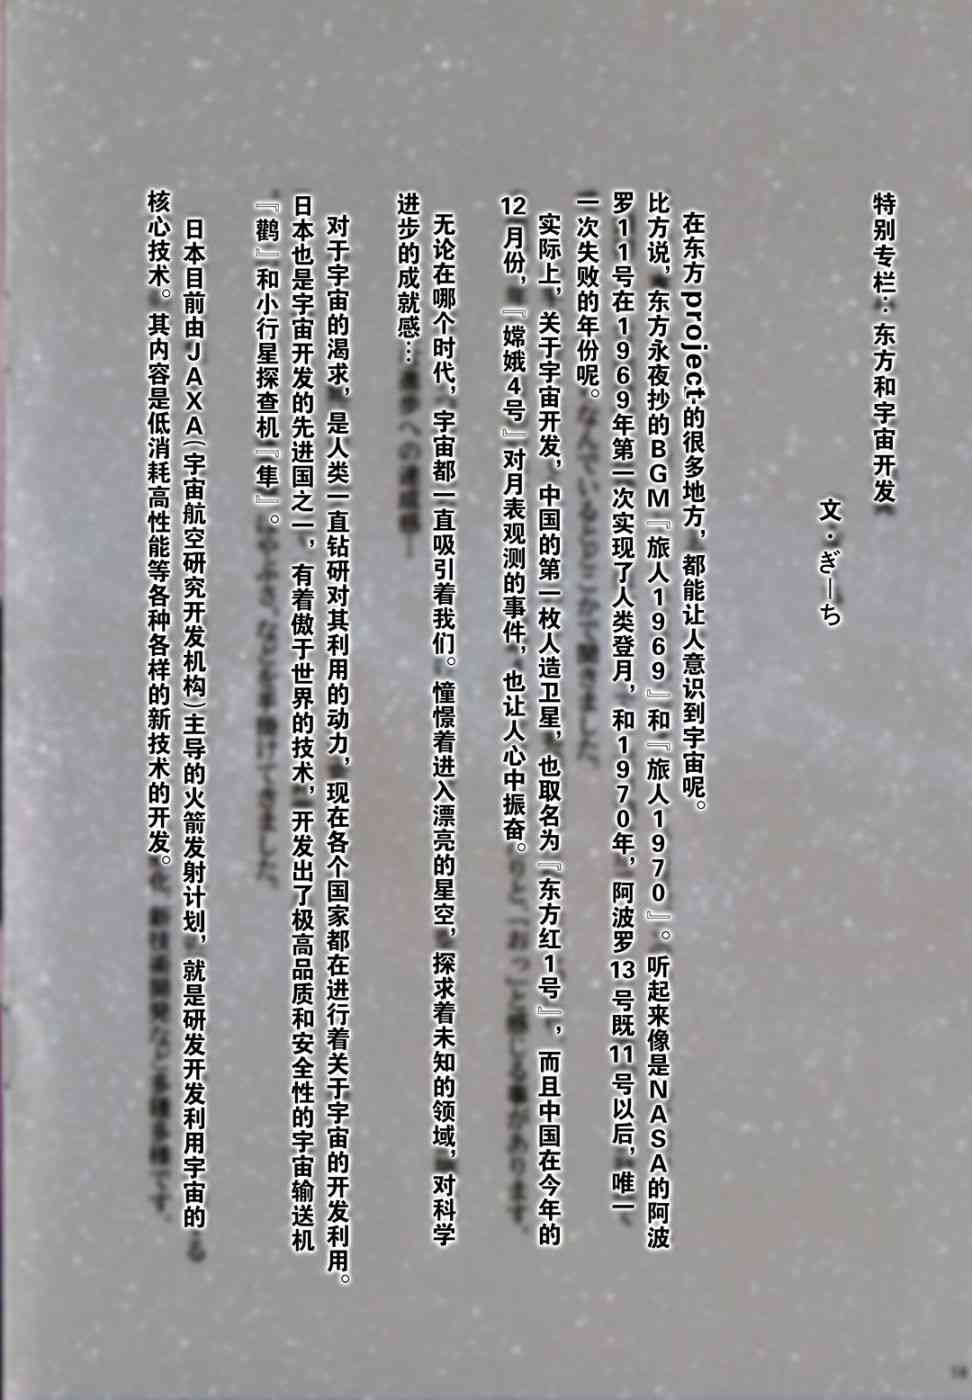 特别专栏：东方和宇宙开发
文・ぎーち
在东方project的很多地方，都能让人意识到宇宙呢。
比方说，东方永夜抄的BGM『旅人1969』和『旅人1970』。听起来像是NASA的阿波
罗11号在1969年第一次实现了人类登月，和1970年，阿波罗13号既11号以后，唯一
一次失败的年份呢。
实际上，关于宇宙开发，中国的第一枚人造卫星，也取名为『东方红1号』，而且中国在今年的
12月份，『嫦娥4号』对月表观测的事件，也让人心中振奋。
无论在哪个时代，宇宙都一直吸引着我们。憧憬着进入漂亮的星空，探求着未知的领域，对科学
进步的成就感…
对于宇宙的渴求，是人类一直钻研对其利用的动力，现在各个国家都在进行着关于宇宙的开发利用。
日本也是宇宙开发的先进国之一，有着傲于世界的技术，开发出了极高品质和安全性的宇宙输送机
『鹳』和小行星探查机『隼』。
日本目前由JAXA（宇宙航空研究开发机构）主导的火箭发射计划，就是研发开发利用宇宙的
核心技术。其内容是低消耗高性能等各种各样的新技术的开发。